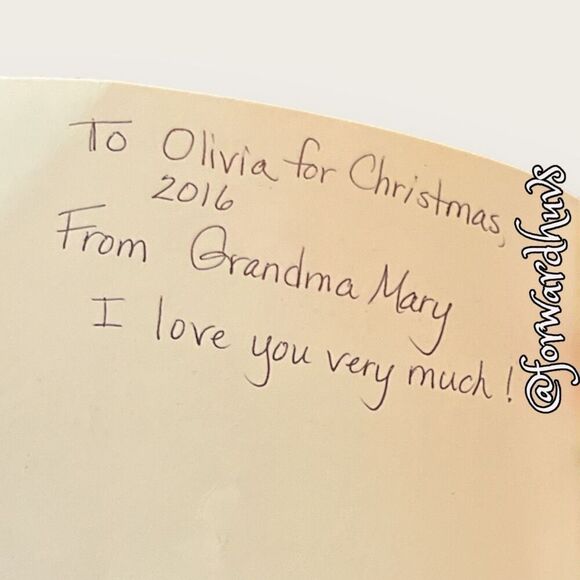 To Olivia for Christmas,
2016
From Grandma Mary
I love you very much!
@forwardhuvs